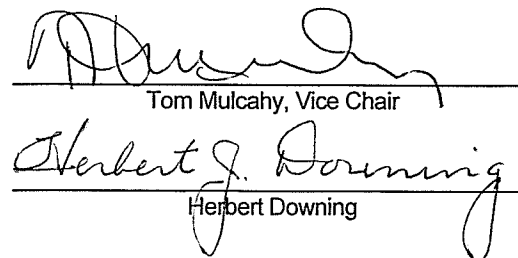 Tom Mulcahy, Vice Chair
Herbert J. Downing
Herbert Downing